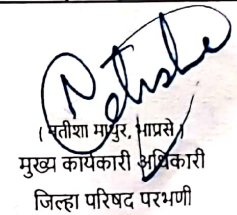 ( नतीशा माथुर, भाप्रसे )
मुख्य कार्यकारी अधिकारी
जिल्हा परिषद परभणी